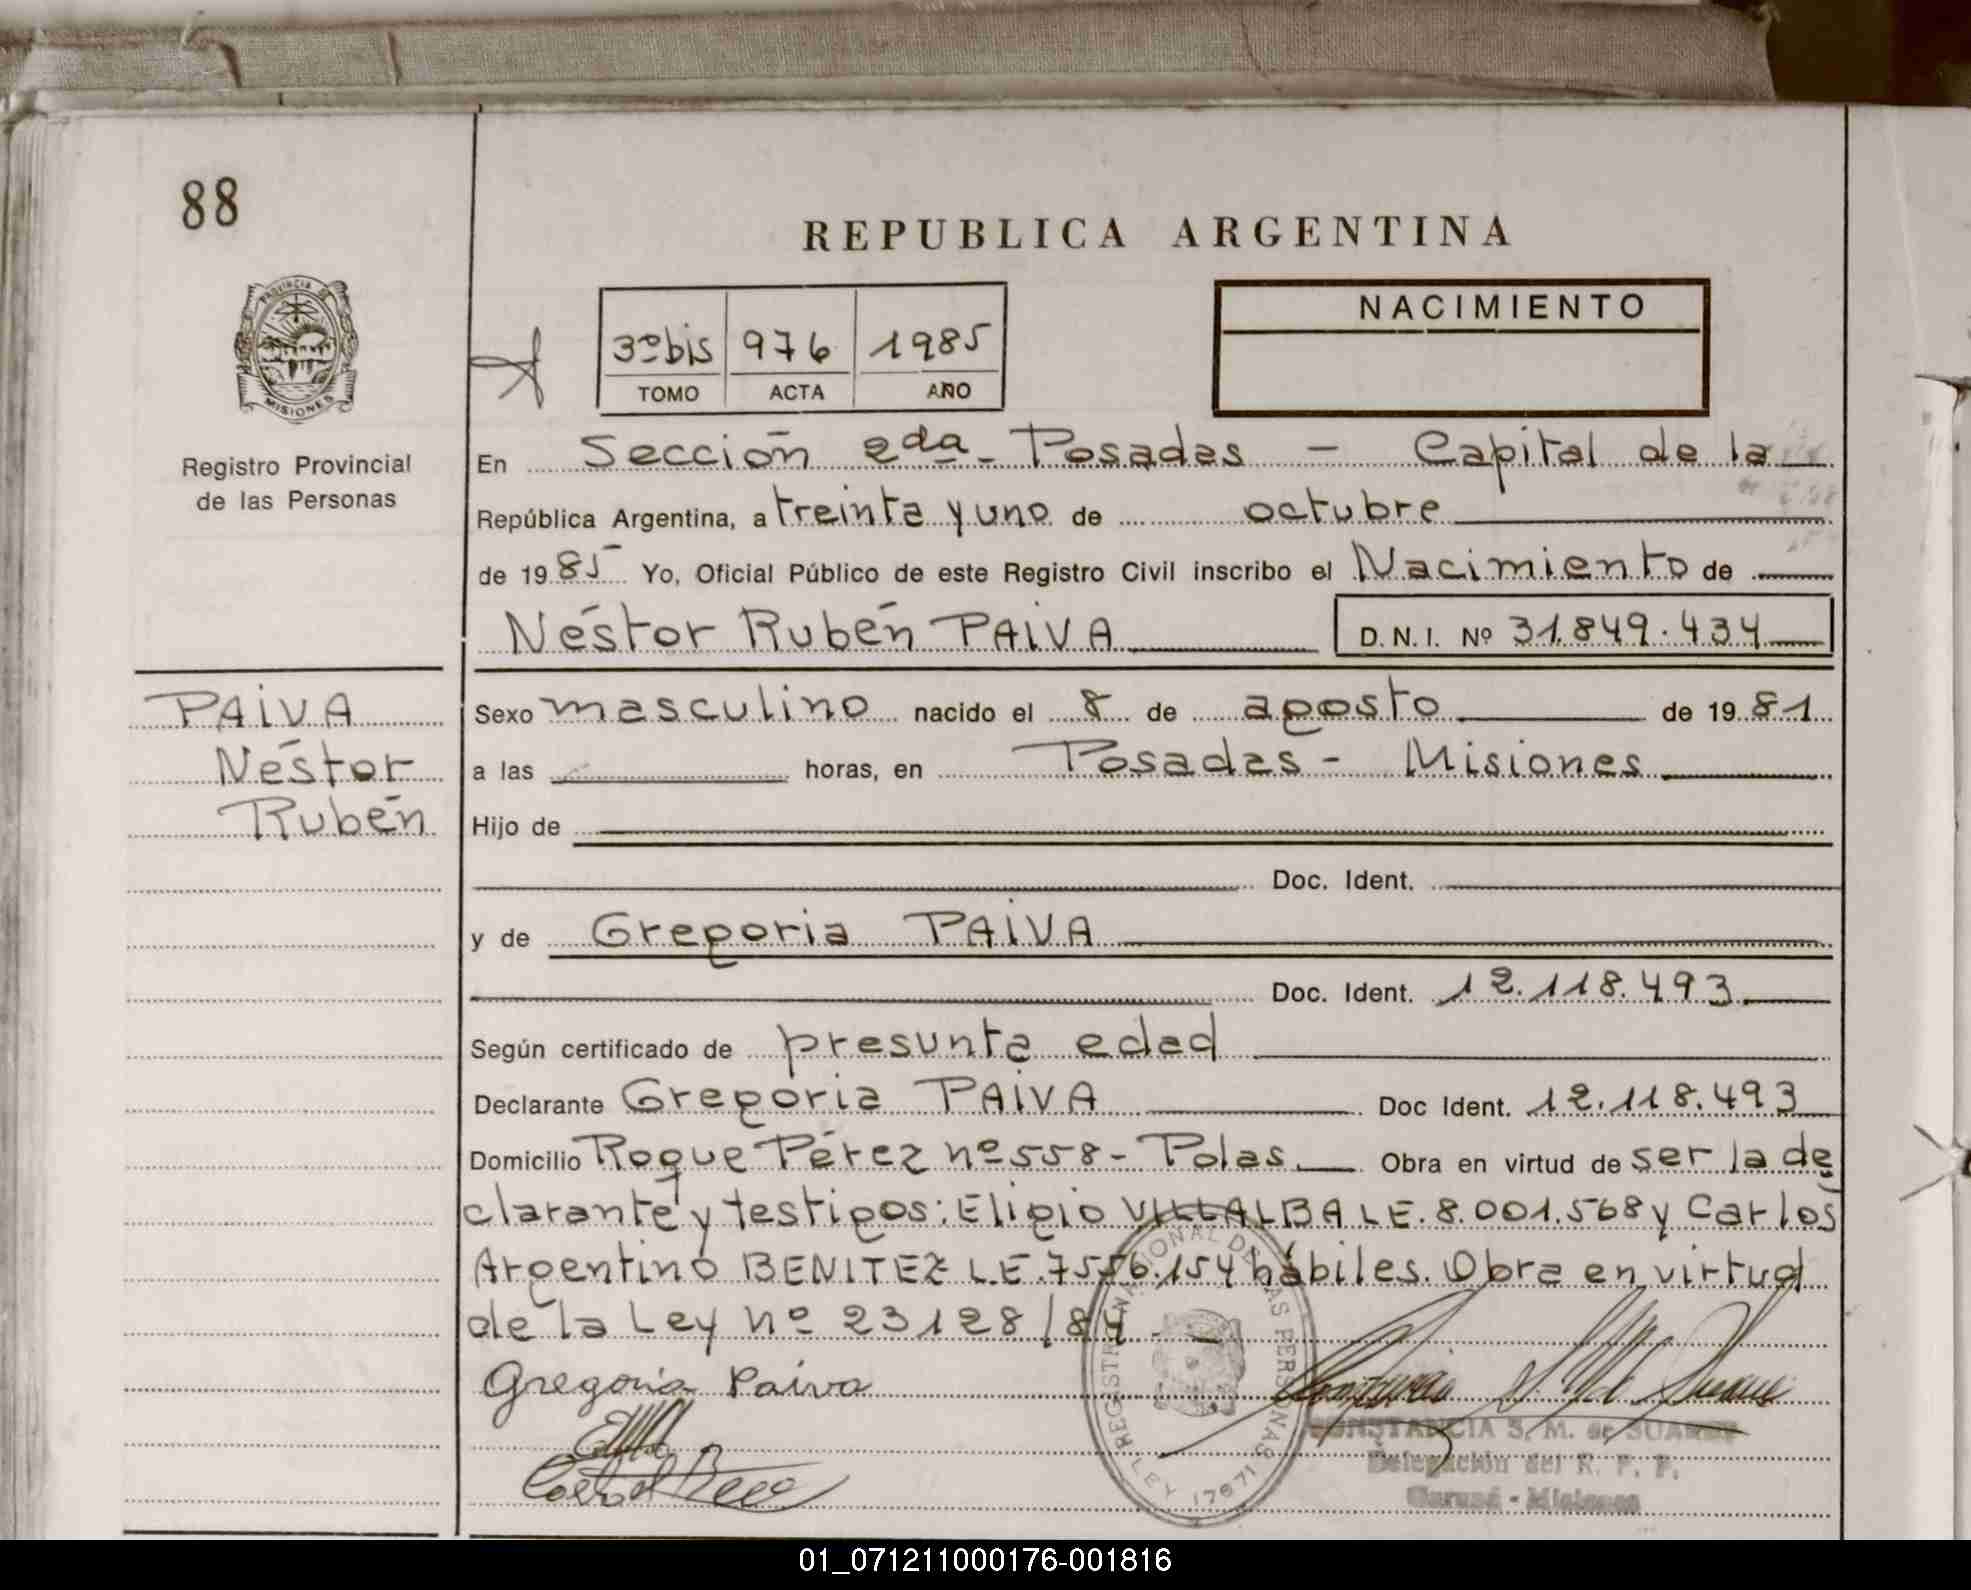 88
REPUBLICA ARGENTINA
PROVINCIA DE MISIONES
Registro Provincial
de las Personas
3º bis 976 1985
TOMO ACTA AÑO
NACIMIENTO
En Sección 2da. Posadas - Capital de la
República Argentina, a treinta y uno de octubre
de 1985 Yo, Oficial Público de este Registro Civil inscribo el Nacimiento de
Néstor Rubén PAIVA D.N.I. Nº 31.849.434
PAIVA
Néstor
Rubén
Sexo masculino nacido el 8 de agosto de 1981
a las horas, en Posadas - Misiones
Hijo de
Doc. Ident.
y de Gregoria PAIVA
Doc. Ident. 12.118.493
Según certificado de presunta edad
Declarante Gregoria PAIVA Doc Ident. 12.118.493
Domicilio Roque Pérez nº 558 - Pdas. Obra en virtud de ser la de
clarante y testigos: Eligio VILLALBA L.E. 8.001.568 y Carlos
Argentino BENITEZ L.E. 7.556.154 hábiles. Obra en virtud
de la Ley nº 23128/84
Gregoria Paiva
REGISTRO NACIONAL DE LAS PERSONAS
LEY 17671
CONSTANCIA S. M. de SUAREZ
Delegación del R. P. P.
Garupá - Misiones
01_071211000176-001816